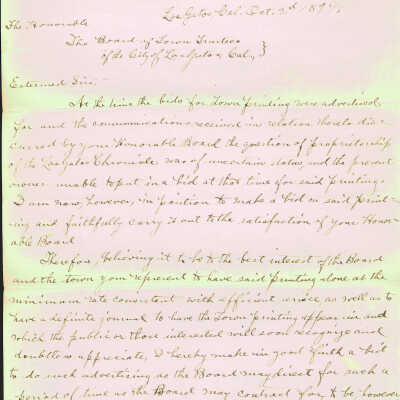 Los Gatos Cal. Oct. 2nd 1897
The Honorable
The Board of Town Trustees
of the City of Los Gatos Cal.
Esteemed Sirs:-
At the time the bids for Town Printing were advertised
for and the communications received in relation thereto dis-
cussed by your Honorable Board the question of proprietorship
of the Los Gatos Chronicle was of uncertain status, and the present
owner unable to put in a bid at that time for said printing.
I am now, however, in position to make a bid on said print-
ing and faithfully carry it out to the satisfaction of your Honor-
able Board
Therefore, believing it to be to the best interest of the Board
and the town you represent to have said printing done at the
minimum rate consistent with efficient service as well as to
have a definite journal to have the Town printing appear in and
which the public or those interested will soon recognize and
doubtless appreciate, I hereby make in good faith a bid
to do such advertising as the Board may direct for such a
period of time as the Board may contract for, to be however